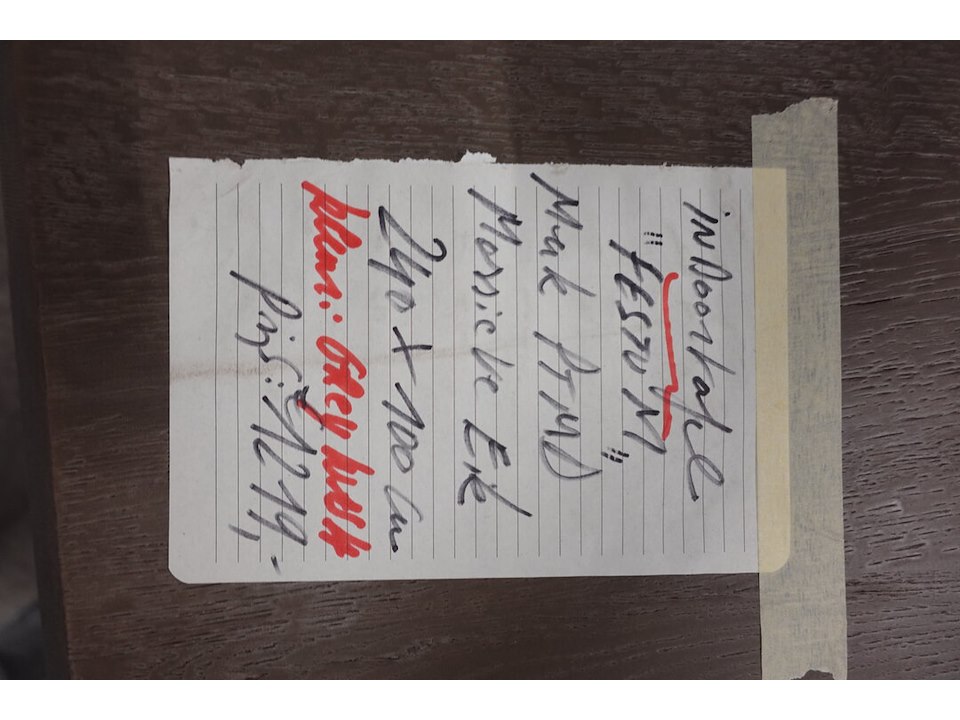 iNDoortafel
"FESTU'M"
Merk PTMD
Massieve Eik
240 X 100 cm
kleur: Grey Wash
Prijs: 1219,-